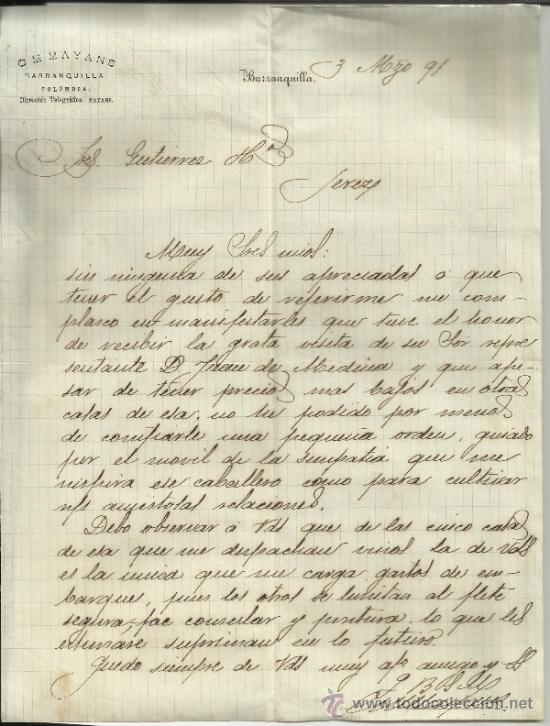 C M MAYANS
BARRANQUILLA
COLOMBIA.
Dirección Telegráfica: MAYANS.
Barranquilla, 3 Mzo 91
Sres Gutierrez Hos
Jerez
Muy Sres mios:
sin ninguna de sus apreciadas a que
tener el gusto de referirme me com-
plasco en manifestarles que tuve el honor
de recibir la grata visita de su Sor repre
sentante D Juan de Medina y que ape-
sar de tener precios mas bajos en otras
casas de esa, no he podido por menos
de confiarle una pequeña orden, guiado
por el movil de la simpatia que me
inspira ese caballero como para cultivar
nfs amistosas relaciones.
Debo observar á Vds que de las cinco casas
de esa que me despachan vinos la de Vds
es la unica que me carga gastos de em-
barque, pues los otros se limitan al flete
seguro, fac consular y, lo que les
supriman en lo futuro.
Quedo siempre de Vds muy afo amigo y SS
Q B S M
todocoleccion.net